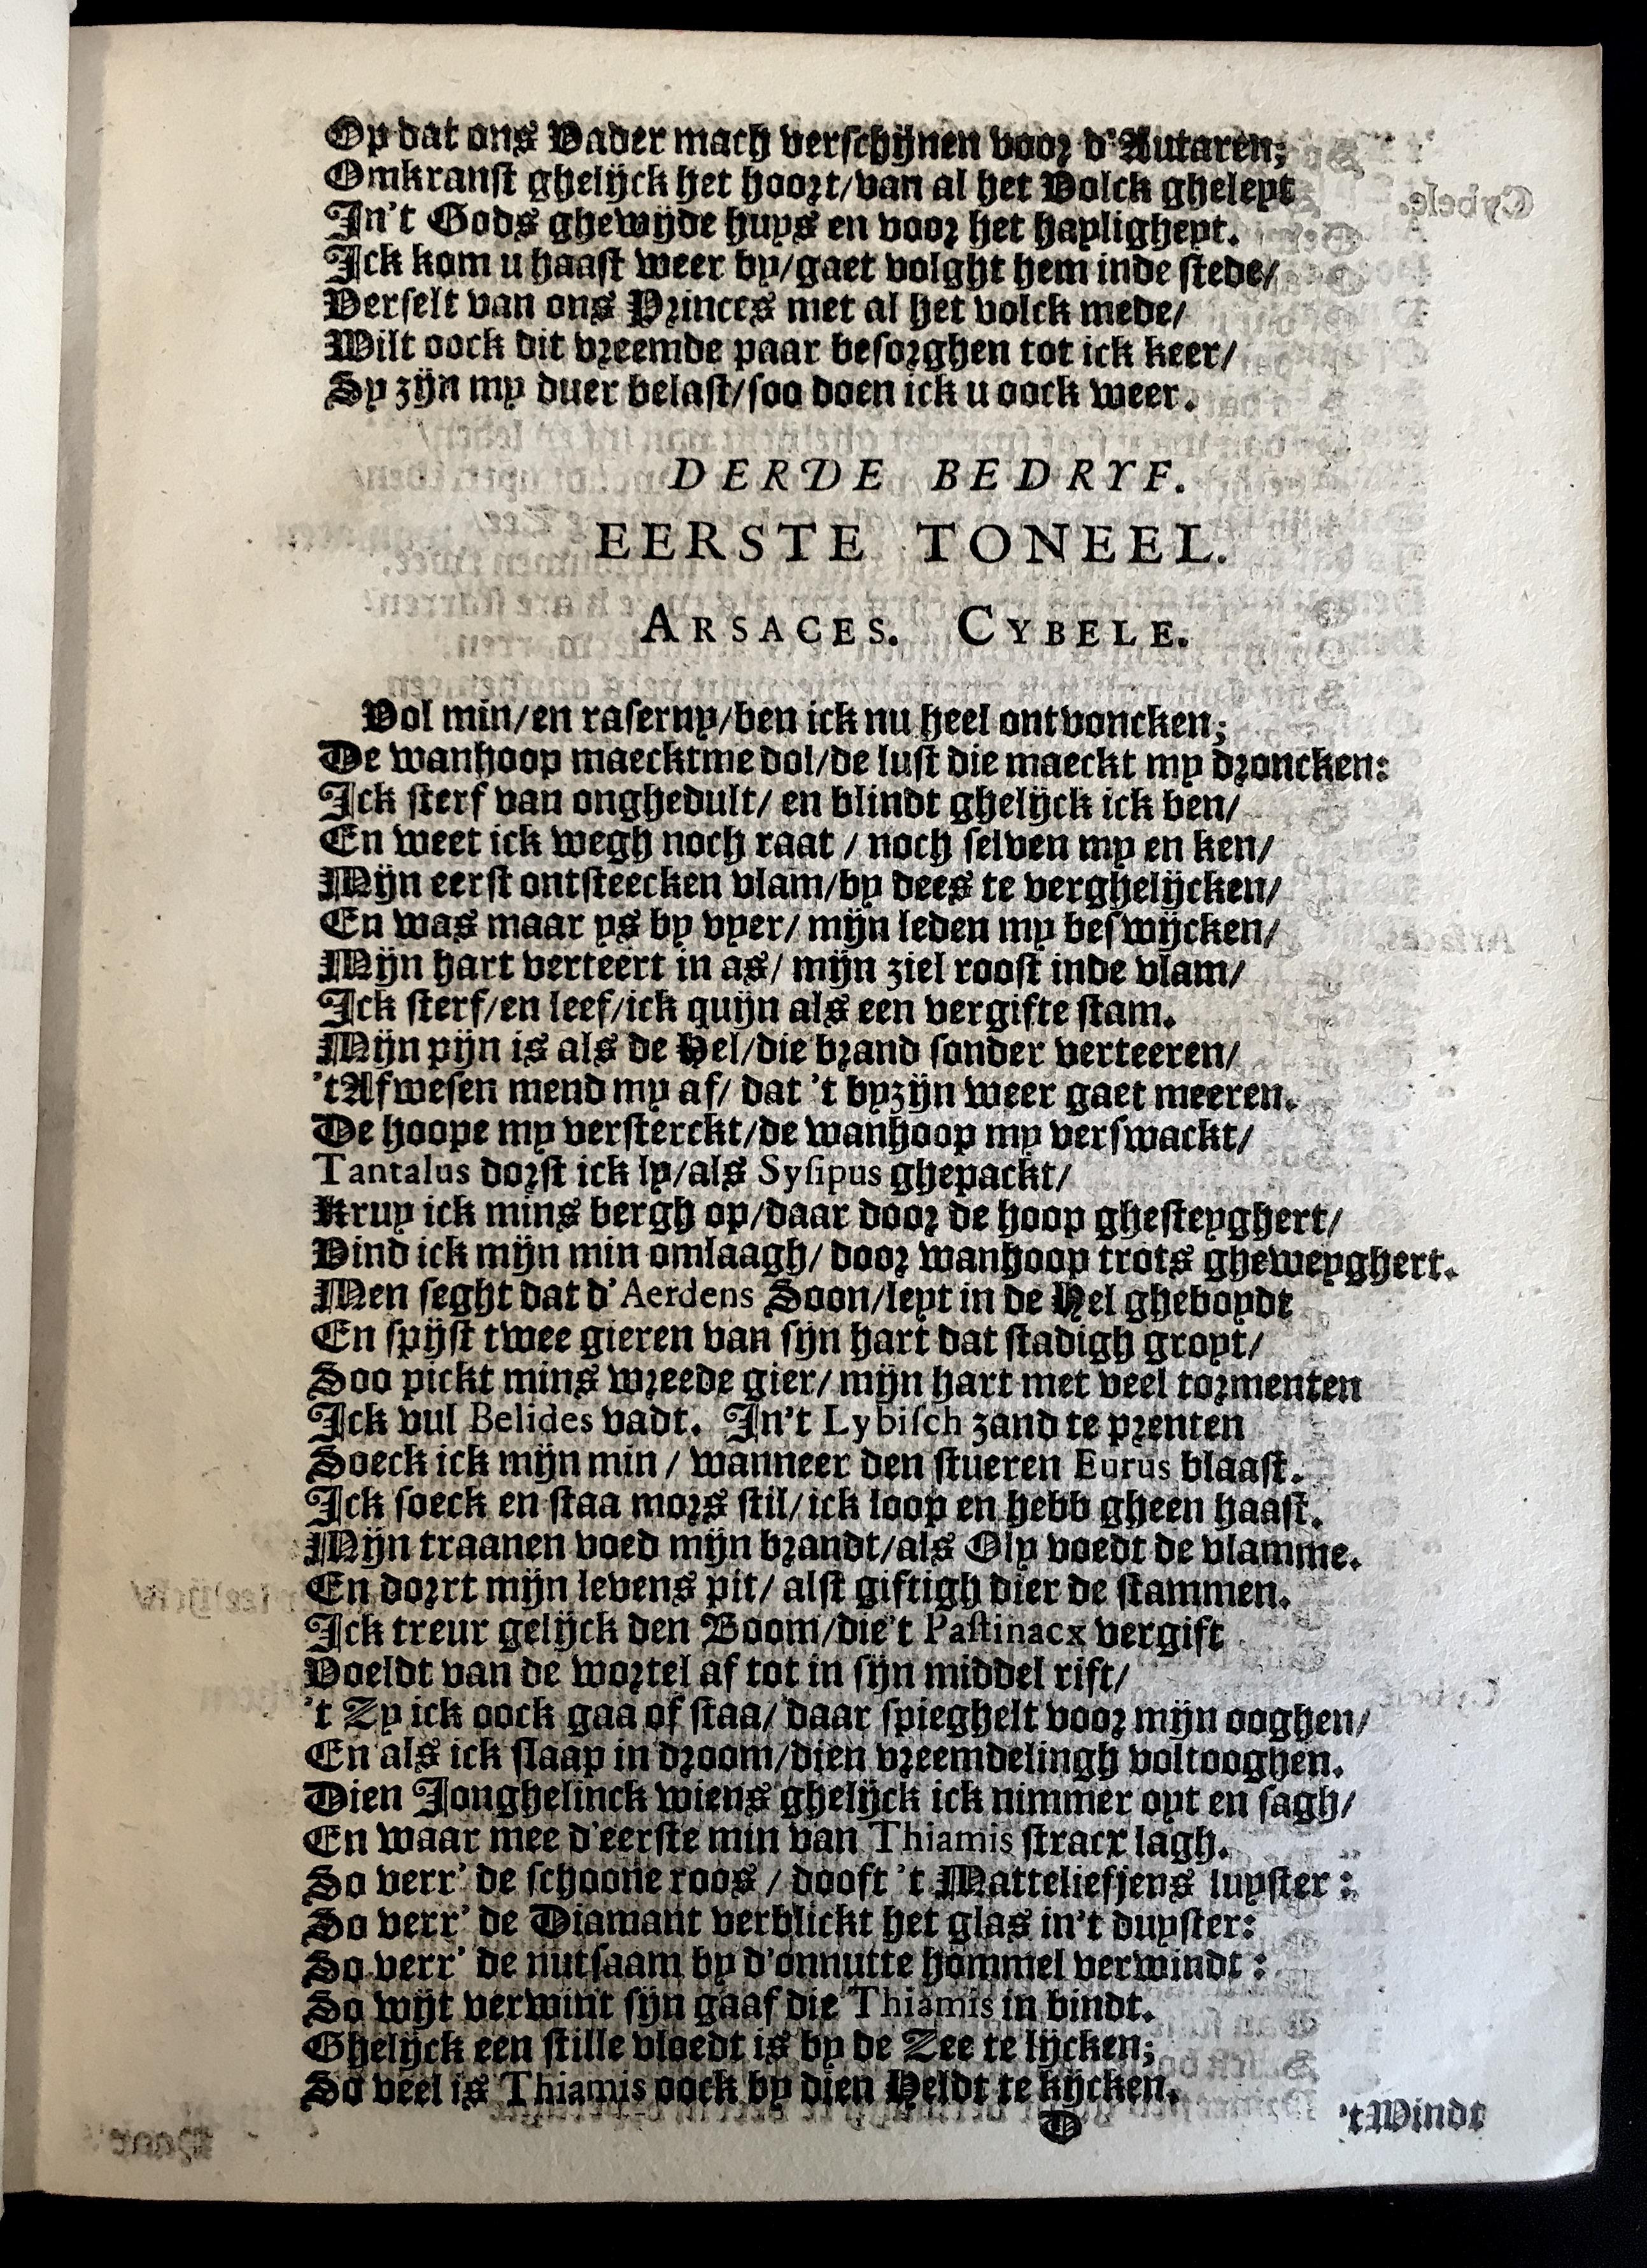 Op dat ons Vader mach verschijnen voor d'Autaren;
Omkranst ghelijck het hoort/van al het Volck gheleyt
In't Gods ghewijde huys en voor het hayligheyt.
Ick kom u haast weer by/gaet volght hem inde stede/
Verselt van ons Princes met al het volck mede/
Wilt oock dit vreemde paar besorghen tot ick keer/
Sy zijn my duer belast/soo doen ick u oock weer.
DERDE BEDRYF.
EERSTE TONEEL.
ARSACES. CYBELE.
Vol min/en raserny/ben ick nu heel ontvoncken;
De wanhoop maecktme dol/de lust die maeckt my droncken:
Ick sterf van onghedult/ en blindt ghelijck ick ben/
En weet ick wegh noch raat / noch selven my en ken/
Mijn eerst ontsteecken vlam/by dees te verghelijcken/
En was maar ys by vyer/ mijn leden my beswijcken/
Mijn hart verteert in as/ mijn ziel roost inde vlam/
Ick sterf/en leef/ick quijn als een vergifte stam.
Mijn pijn is als de Hel/die brand sonder verteeren/
'tAfwesen mend my af/ dat 't byzijn weer gaet meeren.
De hoope my versterckt/de wanhoop my verswackt/
Tantalus dorst ick ly/als Sysipus ghepackt/
Kruy ick mins bergh op/daar door de hoop ghesteyghert/
Vind ick mijn min omlaagh/ door wanhoop trots gheweyghert.
Men seght dat d' Aerdens Soon/leyt in de Hel gheboydt
En spijst twee gieren van sijn hart dat stadigh groyt/
Soo pickt mins wreede gier/ mijn hart met veel tormenten
Ick vul Belides vadt. In't Lybisch zand te prenten
Soeck ick mijn min / wanneer den stueren Eurus blaast.
Ick soeck en staa mors stil/ick loop en hebb gheen haast.
Mijn traanen voed mijn brandt/als Oly voedt de vlamme.
En dorrt mijn levens pit/ alst giftigh dier de stammen.
Ick treur gelijck den Boom/die't Pastinacx vergift
Voeldt van de wortel af tot in sijn middel rift/
't Zy ick oock gaa of staa/ daar spieghelt voor mijn ooghen/
En als ick slaap in droom/dien vreemdelingh voltooghen.
Dien Jonghelinck wiens ghelijck ick nimmer oyt en sagh/
En waar mee d'eerste min van Thiamis stracx lagh.
So verr' de schoone roos / dooft 't Matteliefjens luyster:
So verr' de Diamant verblickt het glas in't duyster:
So verr' de nutsaam by d'onnutte hommel verwindt:
So wijt verwint sijn gaaf die Thiamis in bindt.
Ghelijck een stille vloedt is by de Zee te lijcken;
So veel is Thiamis oock by dien Heldt te kijcken.
D
't Windt